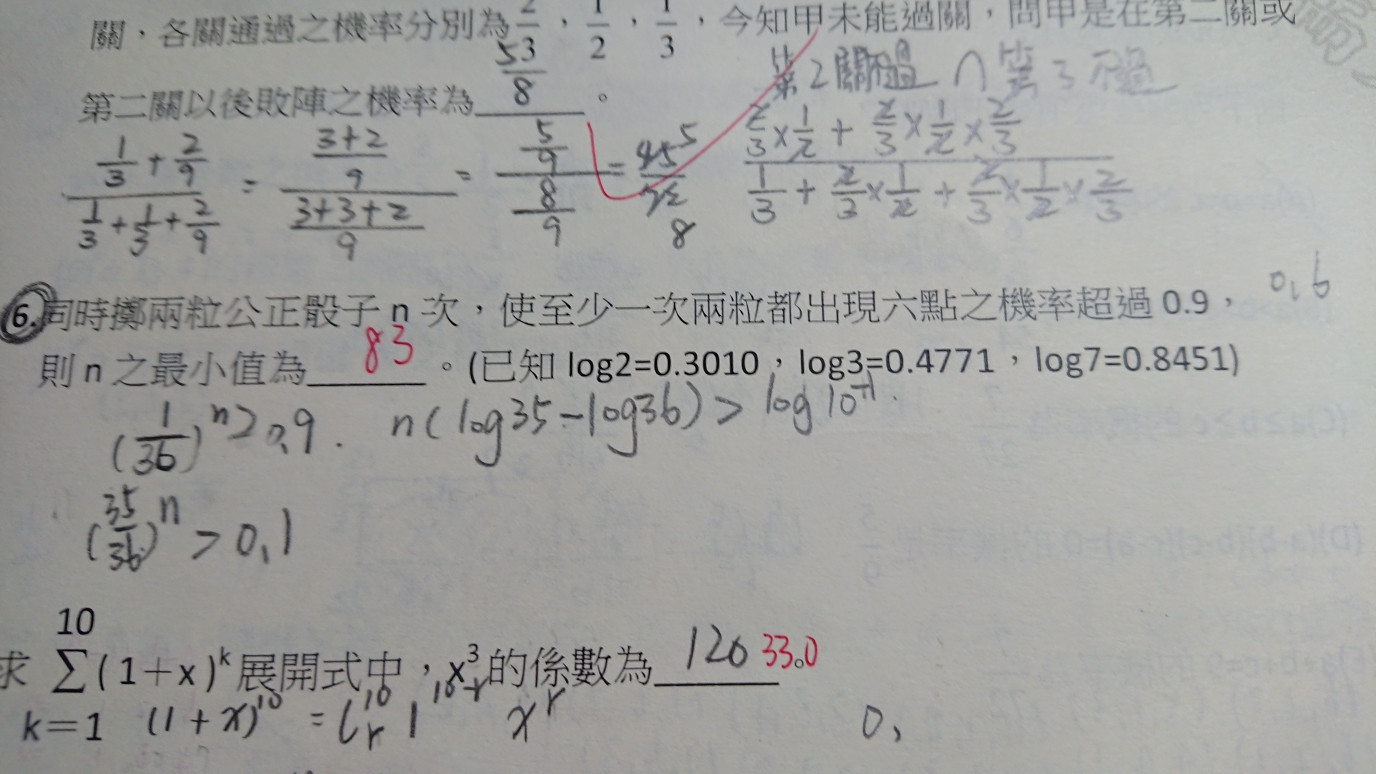 關,各關通過之機率分別為 2/3,1/2,1/3,今知甲未能過關,問甲是在第二關或
第二關以後敗陣之機率為 5/8 。
第2關過 ∩ 第3不過
(1/3 + 2/9)/(1/3 + 1/3 + 2/9) = ((3+2)/9)/((3+3+2)/9) = (5/9)/(8/9) = 45/72 5 8
(2/3 × 1/2 + 2/3 × 1/2 × 2/3)/(1/3 + 2/3 × 1/2 + 2/3 × 1/2 × 2/3)
6.同時擲兩粒公正骰子 n 次,使至少一次兩粒都出現六點之機率超過 0.9, 0.6
則 n 之最小值為 83 。(已知 log2=0.3010,log3=0.4771,log7=0.8451)
(1/36)^n ≥ 0.9. n(log35-log36) > log10^-1.
(35/36)^n > 0.1
10
求 Σ(1+x)^k 展開式中,x^3 的係數為 120 330
k=1 (1+x)^10 = C^10_r 1^10-r x^r 0,